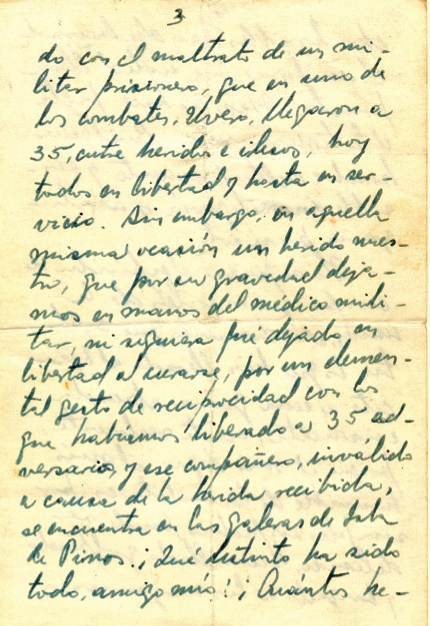 3
do con el maltrato de un mi-
litar prisionero, que en uno de
los combates, Uvero, llegaron a
35, entre heridos e ilesos, hoy
todos en libertad y hasta en ser-
vicio. Sin embargo, en aquella
misma ocasión un herido nues-
tro, que por su gravedad deja-
mos en manos del médico mili-
tar, ni siquiera fué dejado en
libertad al curarse, por un elemen-
tal gesto de reciprocidad con los
que habíamos liberado a 35 ad-
versarios y ese compañero, inválido
a causa de la herida recibida,
se encuentra en las galeras de Isla
de Pinos. ¡Qué distinto ha sido
todo, amigo mío! ¡Cuántos he-